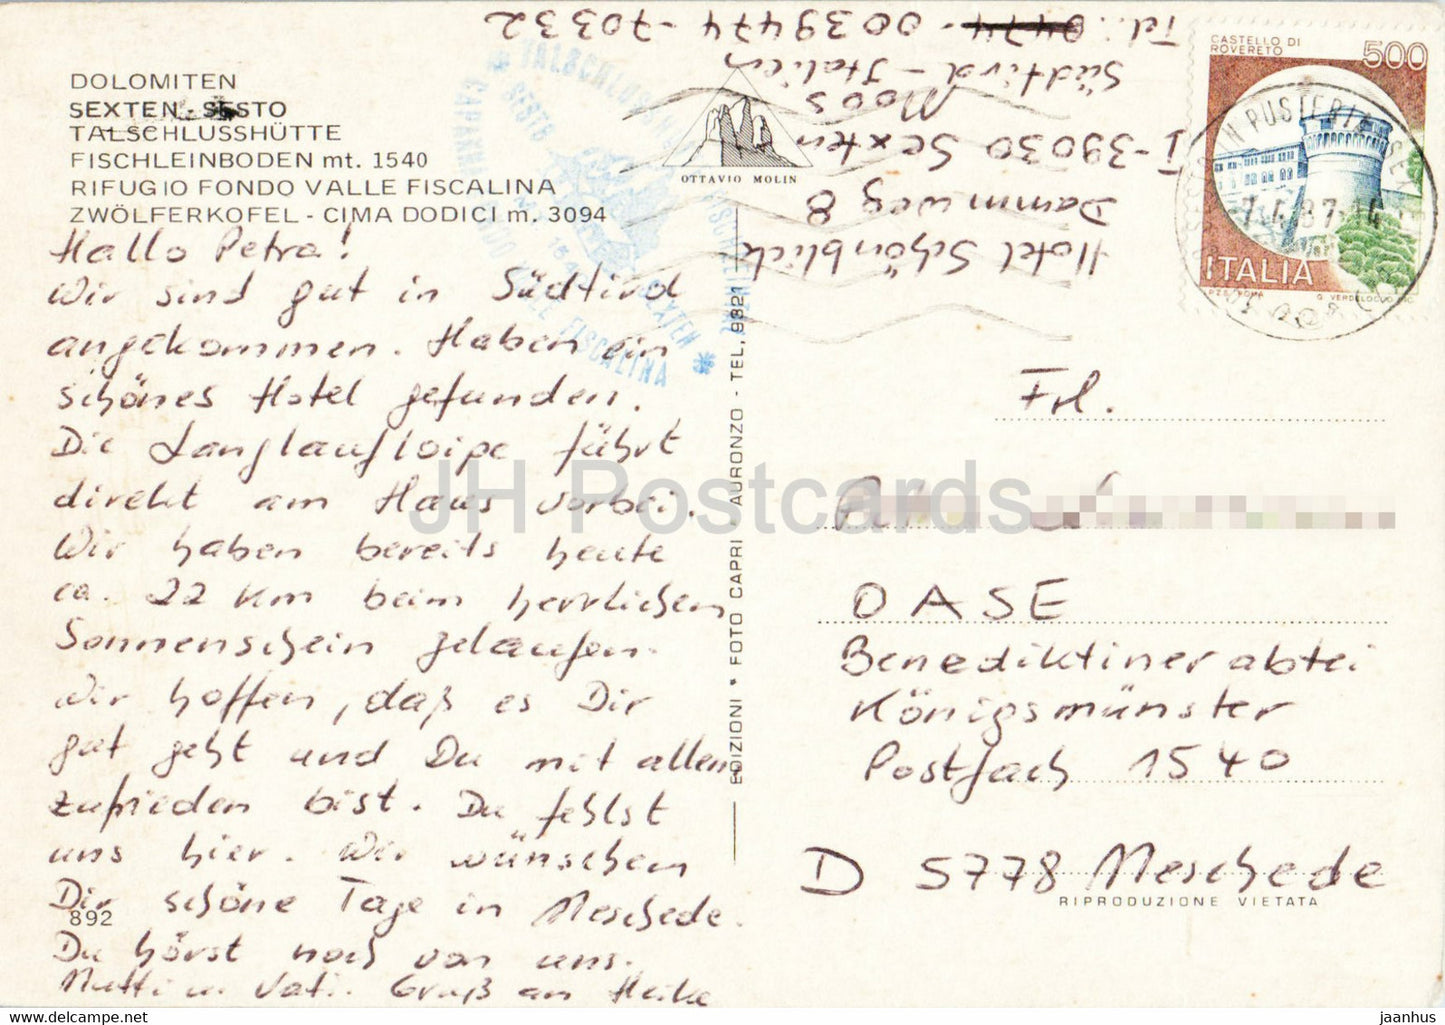 DOLOMITEN
SEXTEN - SESTO
TALSCHLUSSHÜTTE
FISCHLEINBODEN mt. 1540
RIFUGIO FONDO VALLE FISCALINA
ZWÖLFERKOFEL - CIMA DODICI m. 3094
Hallo Petra!
Wir sind gut in Südtirol
angekommen. Haben ein
schönes Hotel gefunden.
Die Langlaufloipe führt
direkt am Haus vorbei.
Wir haben bereits heute
ca. 22 km beim herrlichen
Sonnenschein gelaufen.
Wir hoffen, daß es Dir
gut geht und Du mit allem
zufrieden bist. Du fehlst
uns hier. Wir wünschen
Dir schöne Tage in Meschede.
Du hörst noch von uns.
Mutti u. Vati. Gruß an Heike
892
Hotel Schönblick
Dammweg 8
I-39030 Sexten
Moos
Südtirol - Italien
Tel.: 0039474-70332
OTTAVIO MOLIN
EDIZIONI * FOTO CAPRI - AURONZO - TEL. 9321
TALSCHLUSSHÜTTE FISCHLEINTAL
SESTO SEXTEN
CAPANNA FONDO VALLE FISCALINA
CASTELLO DI
ROVERETO
500
ITALIA
P.Z.S. ROMA
G. VERDELOCCO INC.
Frl.
OASE
Benediktinerabtei
Königsmünster
Postfach 1540
D 5778 Meschede
RIPRODUZIONE VIETATA
JH Postcards
jaanhus
e-mail: jaanhus@gmail.com